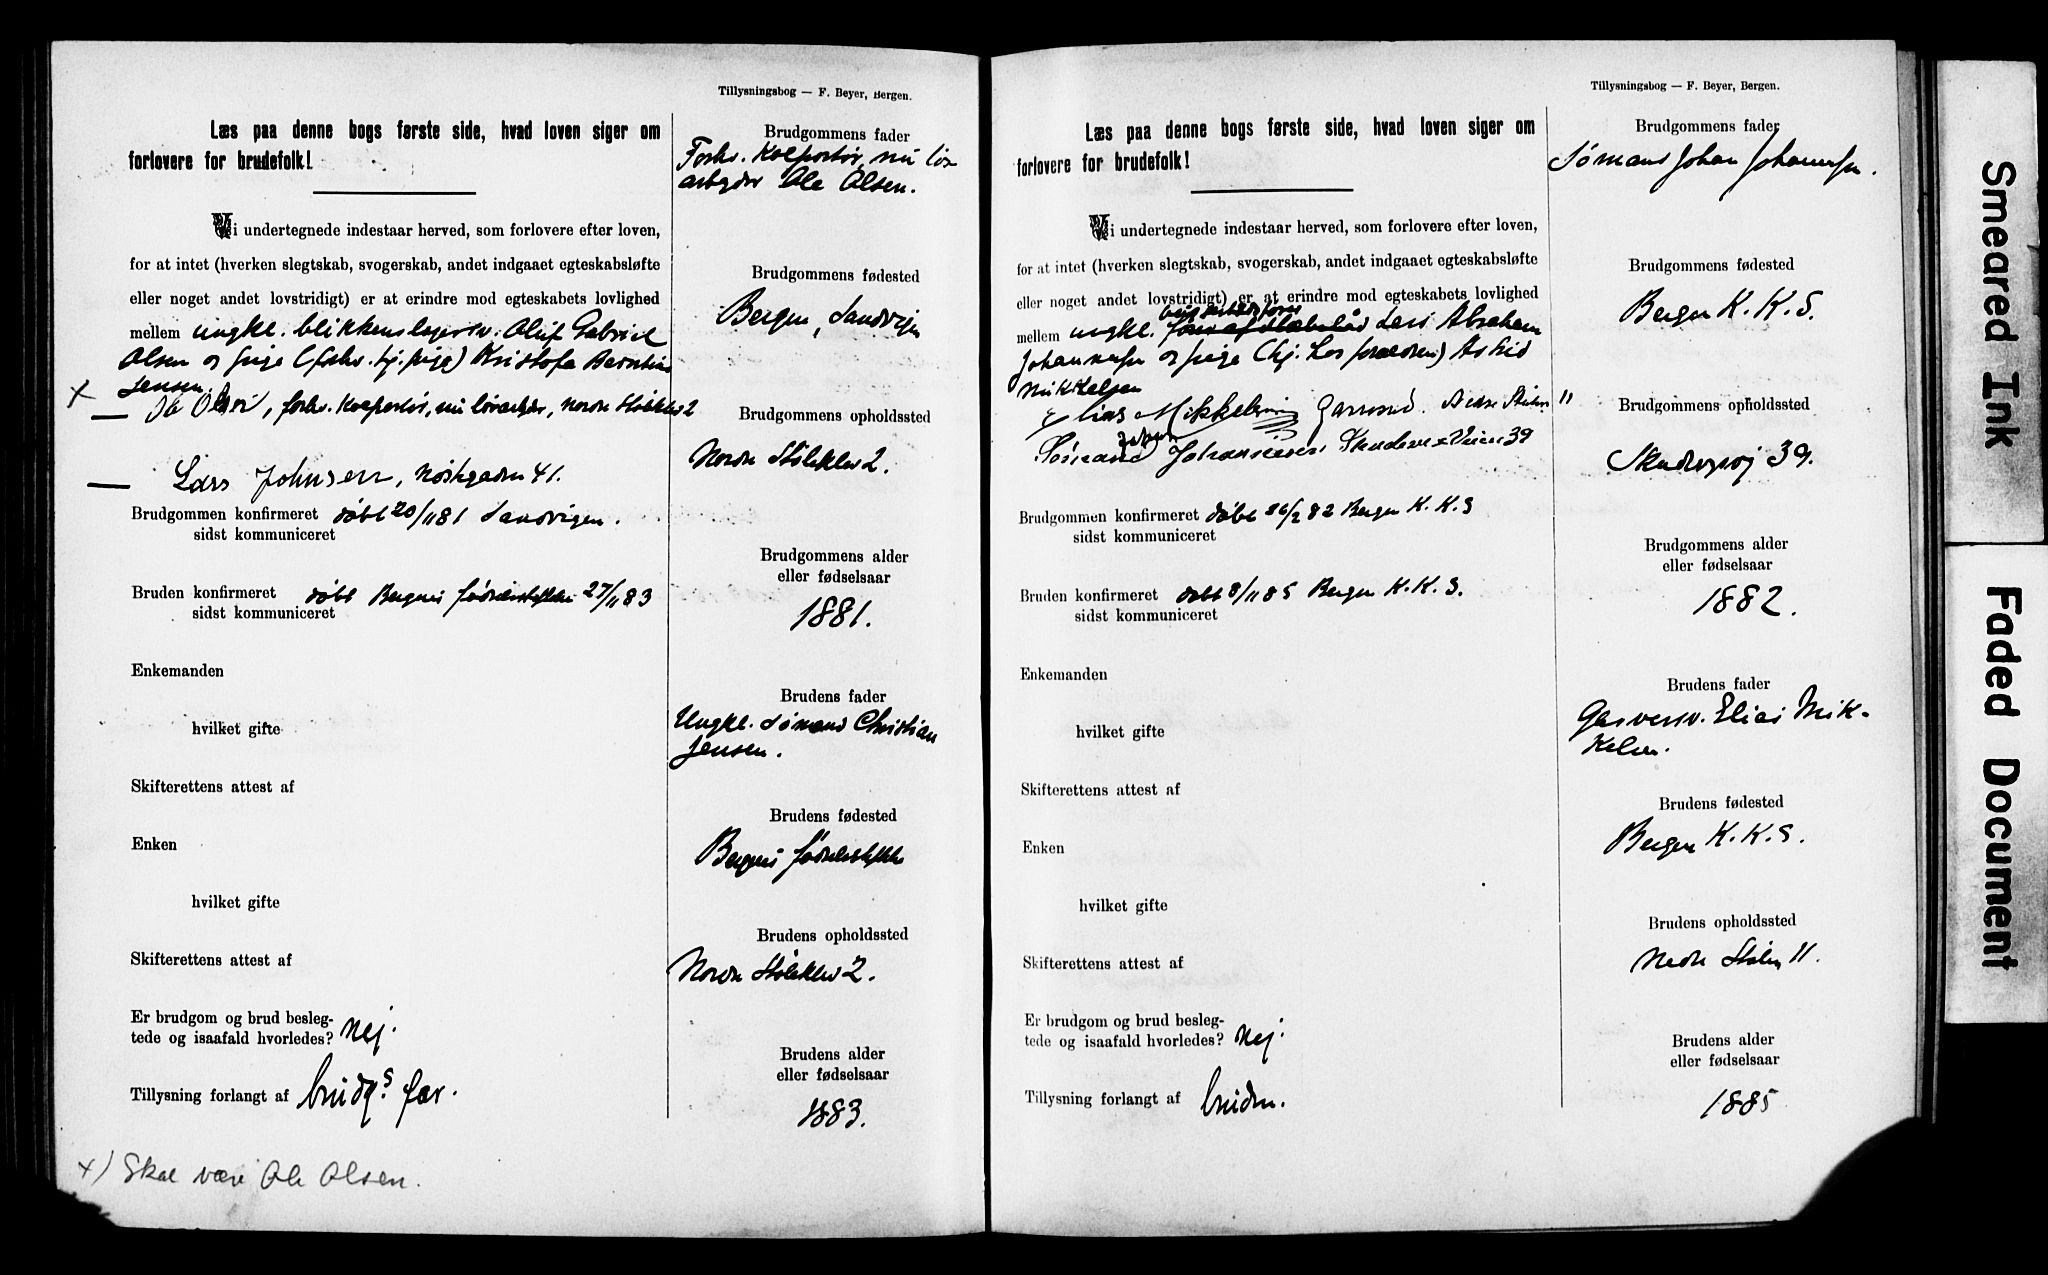 Tillysningsbog — F. Beyer, Bergen.
Læs paa denne bogs første side, hvad loven siger om
forlovere for brudefolk!
Vi undertegnede indestaar herved, som forlovere efter loven,
for at intet (hverken slegtskab, svogerskab, andet indgaaet egteskabsløfte
eller noget andet lovstridigt) er at erindre mod egteskabets lovlighed
mellem ungkl. blikkenslagersv. Oluf Gabriel
Olsen og pige (forhv. tj. pige) Kristofa Berntine
Jensen.
x — Ole Olsen, forhv. Kolportør, nu løsarbeider, Nordre Støleklev 2
— Lars Johnsen, Nøstegaden 41.
Brudgommen konfirmeret døbt 20/11 81 Sandvigen.
sidst kommuniceret
Bruden konfirmeret døbt Bergens fødselsstiftelse 27/11 83
sidst kommuniceret
Enkemanden
hvilket gifte
Skifterettens attest af
Enken
hvilket gifte
Skifterettens attest af
Er brudgom og brud besleg-
tede og isaafald hvorledes? Nej.
Tillysning forlangt af brudg.s far.
x) Skal være Ole Olsen.
Brudgommens fader
Forhv. Kolportør, nu løs
arbeider Ole Olsen.
Brudgommens fødested
Bergen, Sandvigen
Brudgommens opholdssted
Nordre Støleklev 2.
Brudgommens alder
eller fødselsaar
1881.
Brudens fader
Ungkl. Sømand Christian
Jensen.
Brudens fødested
Bergens fødselsstiftelse
Brudens opholdssted
Nordre Støleklev 2.
Brudens alder
eller fødselsaar
1883.
Tillysningsbog — F. Beyer, Bergen.
Læs paa denne bogs første side, hvad loven siger om
forlovere for brudefolk!
Vi undertegnede indestaar herved, som forlovere efter loven,
for at intet (hverken slegtskab, svogerskab, andet indgaaet egteskabsløfte
eller noget andet lovstridigt) er at erindre mod egteskabets lovlighed
mellem ungkl. Lars Abraham
Johannesen og pige (hj. hos forældrene) Astrid
Mikkelsen
Elias Mikkelsen Nedre Stølen 11
Sømand Johan Johannesen Skudeviksveien 39
Brudgommen konfirmeret døbt 26/2 82 Bergen K. K. S
sidst kommuniceret
Bruden konfirmeret døbt 8/11 85 Bergen K. K. S.
sidst kommuniceret
Enkemanden
hvilket gifte
Skifterettens attest af
Enken
hvilket gifte
Skifterettens attest af
Er brudgom og brud besleg-
tede og isaafald hvorledes? Nej.
Tillysning forlangt af bruden.
Brudgommens fader
Sømand Johan Johannesen.
Brudgommens fødested
Bergen K. K. S.
Brudgommens opholdssted
Skudevigsvej 39.
Brudgommens alder
eller fødselsaar
1882.
Brudens fader
Gasverksv. Elias Mik-
kelsen.
Brudens fødested
Bergen K. K. S.
Brudens opholdssted
Nedre Stølen 11.
Brudens alder
eller fødselsaar
1885
Smeared Ink
Faded Document